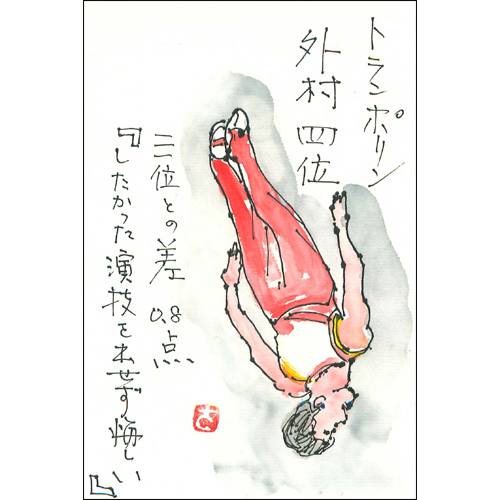 トランポリン
外村 四位
三位との差 0.8点
『したかった演技を出せず悔しい』